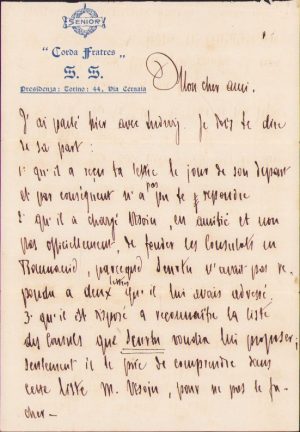 SENIOR
"Corda Fratres"
S. S.
Presidenza: Torino: 44, Via Cernaia
Mon cher ami.
J'ai parlé hier avec . Je dois te dire
de sa part:
1° qu'il a reçu ta lettre le jour de son départ
et par conséquent n'a pas pu te répondre
2° qu'il a chargé Vesoin, en amitié et non
pas officiellement, de fonder les Consulats en
Roumanie, parceque n'avait pas re-
pondu a deux lettres qu'il lui avais adressé
3° qu'il est disposé a reconnaitre la liste
des Consuls que voudra lui proposer;
seulement il te prie de comprendre dans
cette liste M. Vesoin, pour ne pas le fa-
cher —